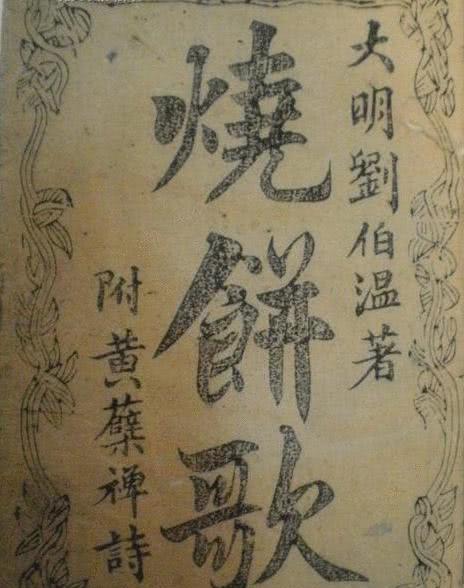 大明劉伯温著
燒餅歌
附黄蘖禅詩